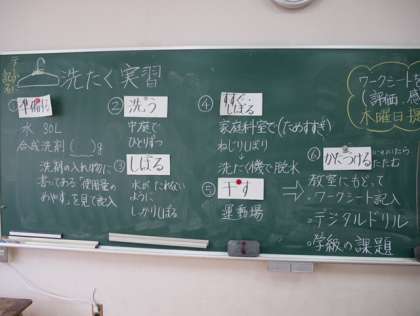 洗たく実習
①準備
水 30L
合成洗剤(　)g
洗剤の入れ物に
書いてある"使用量の
めやす"を見て記入
②洗う
中庭で
ひとりずつ
③しぼる
水がたれない
ように
しっかりしぼる
④すすぐ・しぼる
家庭科室で(ためすすぎ)
ねじりしぼり
↓
洗たく機で脱水
⑤干す
運動場
⑥かたづける
たたむ
⇒教室にもどって
・ワークシート記入
・デジタルドリル
・学級の課題
ワークシート
(評価、感
木曜日